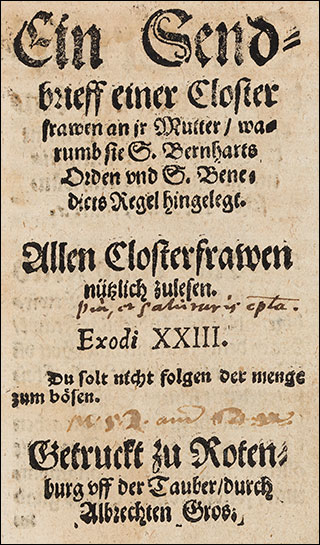 Ein Send⸗
brieff einer Closter
frawen an jr Mutter / wa⸗
rumb sie S. Bernharts
Orden vnd S. Bene⸗
dicts Regel hingelegt.
Allen Closterfrawen
nützlich zulesen.
Exodi XXIII.
Du solt nicht folgen der menge
zum bösen.
Getruckt zu Roten⸗
burg vff der Tauber / durch
Albrechten Gros.